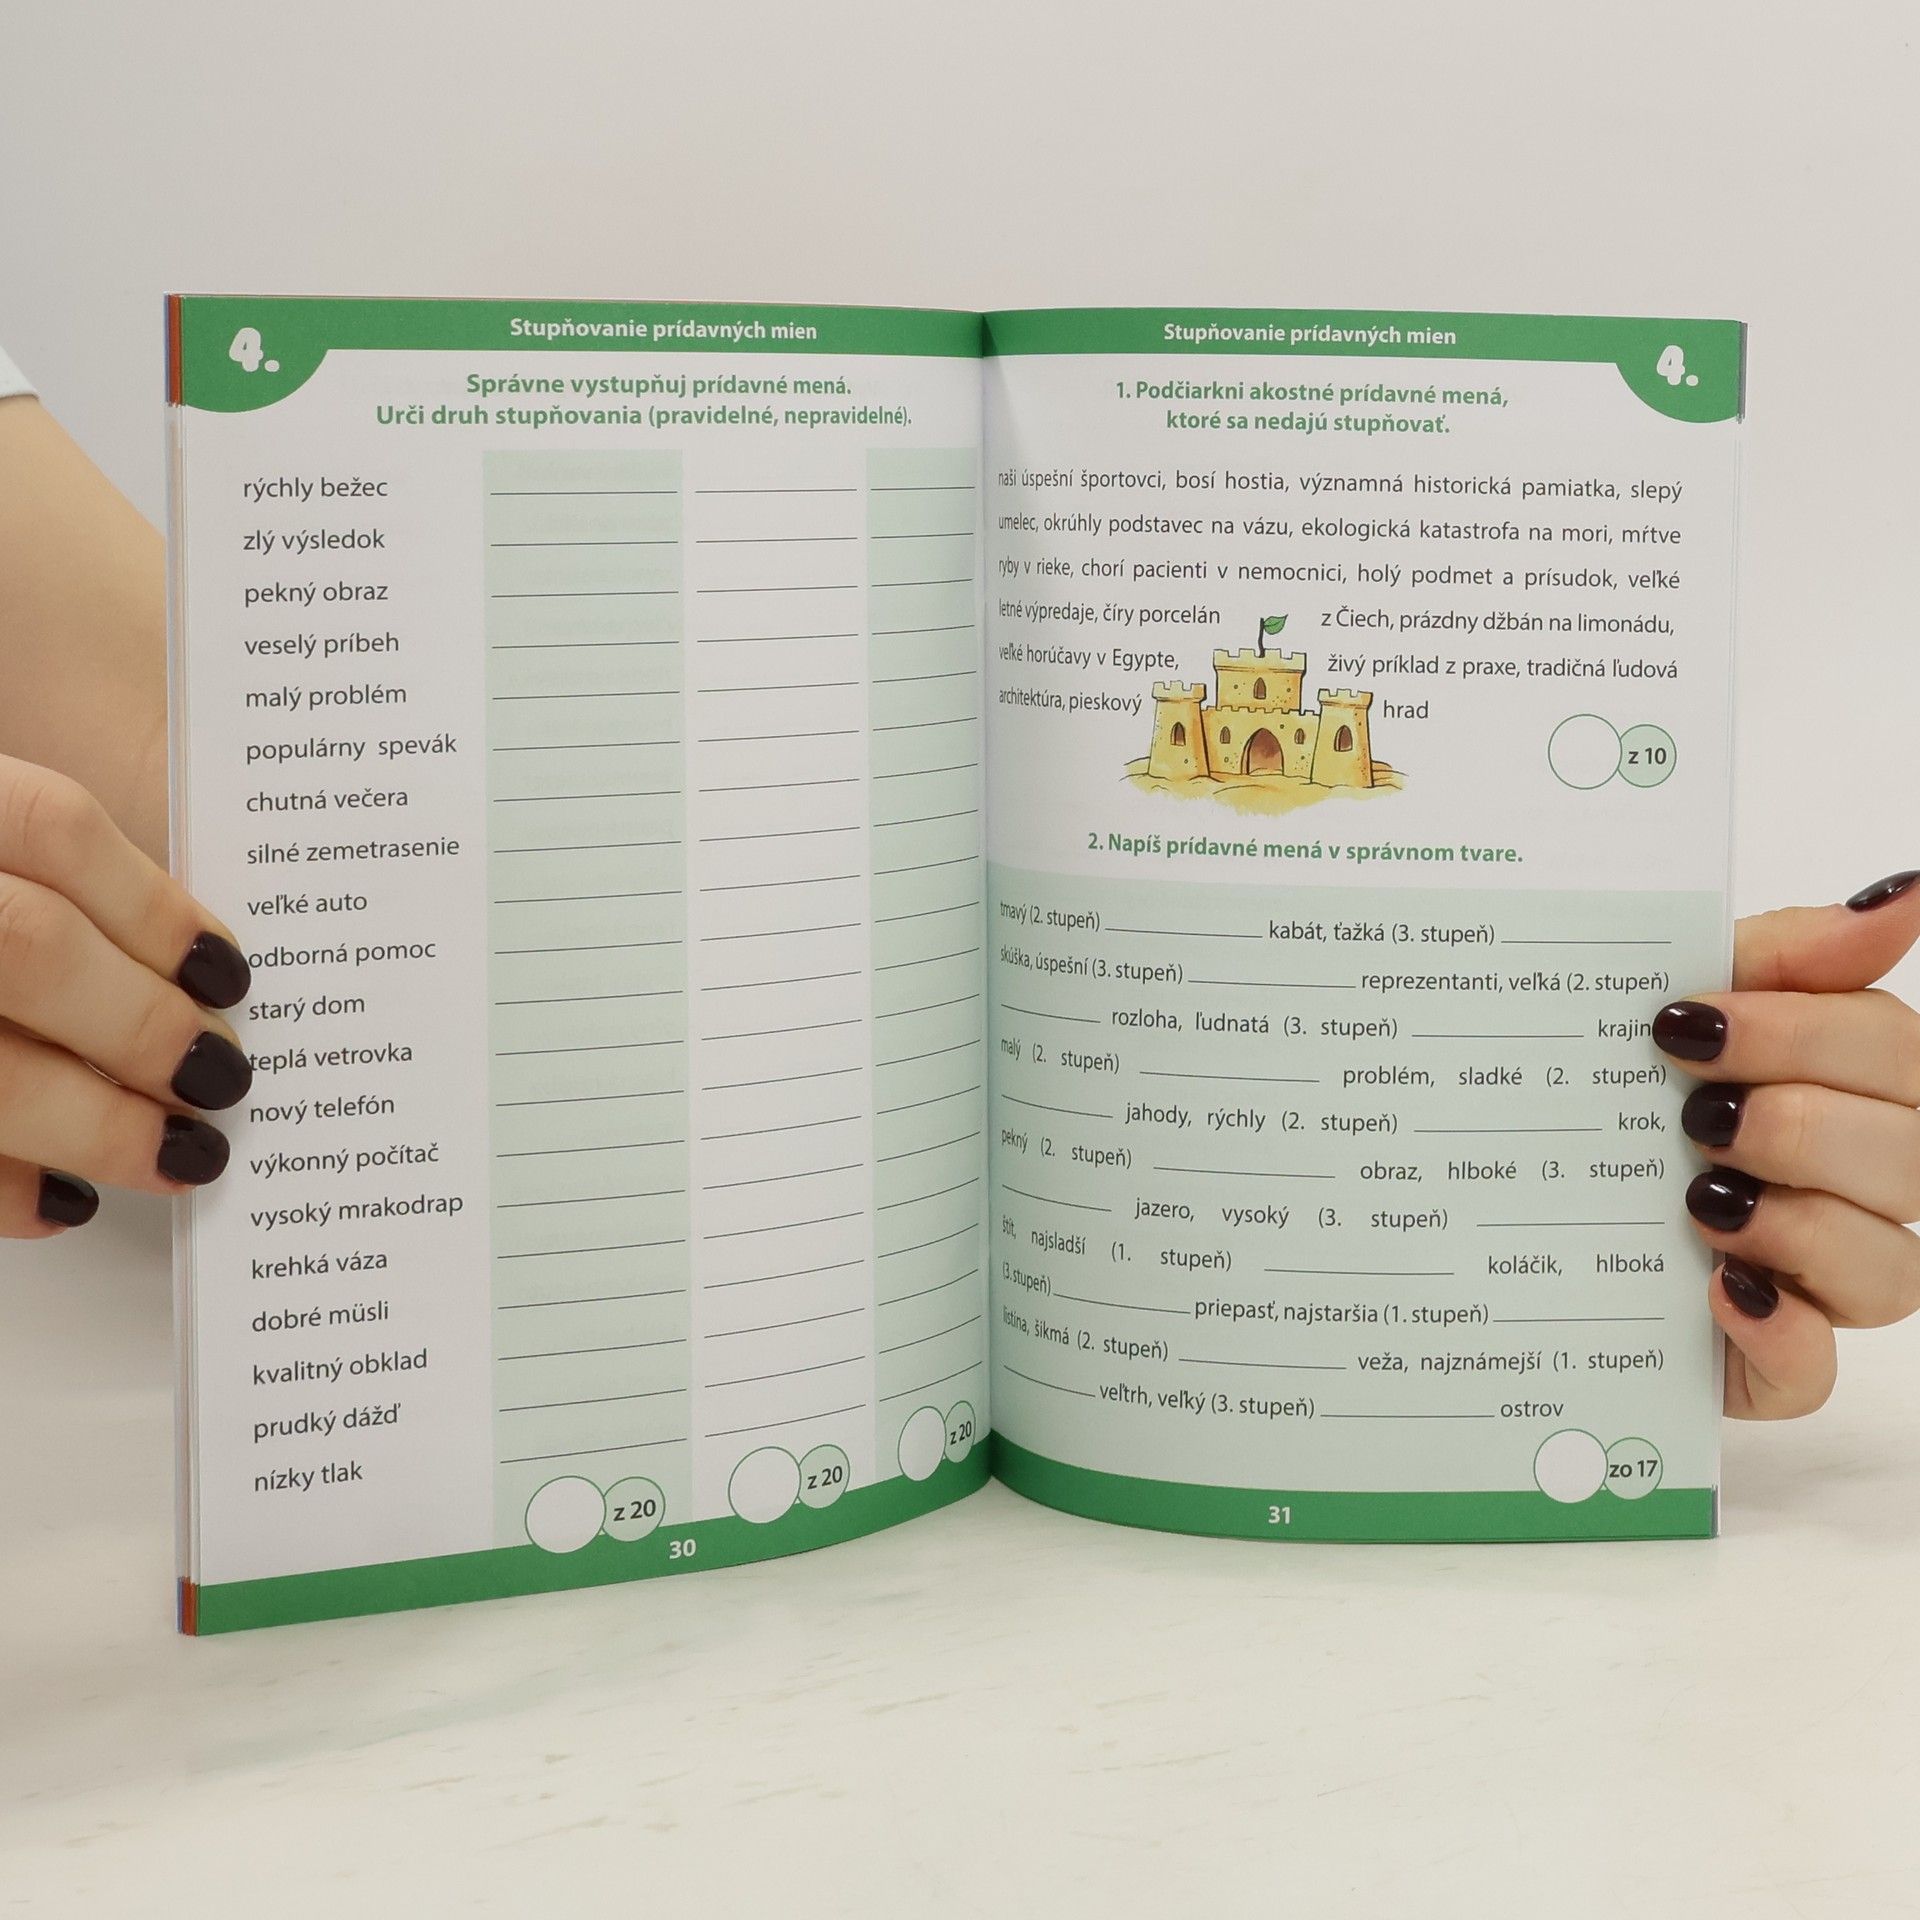 4.
Stupňovanie prídavných mien
Správne vystupňuj prídavné mená.
Urči druh stupňovania (pravidelné, nepravidelné).
rýchly bežec
zlý výsledok
pekný obraz
veselý príbeh
malý problém
populárny spevák
chutná večera
silné zemetrasenie
veľké auto
odborná pomoc
starý dom
teplá vetrovka
nový telefón
výkonný počítač
vysoký mrakodrap
krehká váza
dobré müsli
kvalitný obklad
prudký dážď
nízky tlak
z 20
z 20
z 20
30
Stupňovanie prídavných mien
4.
1. Podčiarkni akostné prídavné mená,
ktoré sa nedajú stupňovať.
naši úspešní športovci, bosí hostia, významná historická pamiatka, slepý
umelec, okrúhly podstavec na vázu, ekologická katastrofa na mori, mŕtve
ryby v rieke, chorí pacienti v nemocnici, holý podmet a prísudok, veľké
letné výpredaje, číry porcelán z Čiech, prázdny džbán na limonádu,
veľké horúčavy v Egypte, živý príklad z praxe, tradičná ľudová
architektúra, pieskový hrad
z 10
2. Napíš prídavné mená v správnom tvare.
tmavý (2. stupeň) kabát, ťažká (3. stupeň)
skúška, úspešní (3. stupeň) reprezentanti, veľká (2. stupeň)
rozloha, ľudnatá (3. stupeň) krajin
malý (2. stupeň) problém, sladké (2. stupeň)
jahody, rýchly (2. stupeň) krok,
pekný (2. stupeň) obraz, hlboké (3. stupeň)
jazero, vysoký (3. stupeň)
štít, najsladší (1. stupeň) koláčik, hlboká
(3. stupeň) priepasť, najstaršia (1. stupeň)
listina, šikmá (2. stupeň) veža, najznámejší (1. stupeň)
veľtrh, veľký (3. stupeň) ostrov
zo 17
31